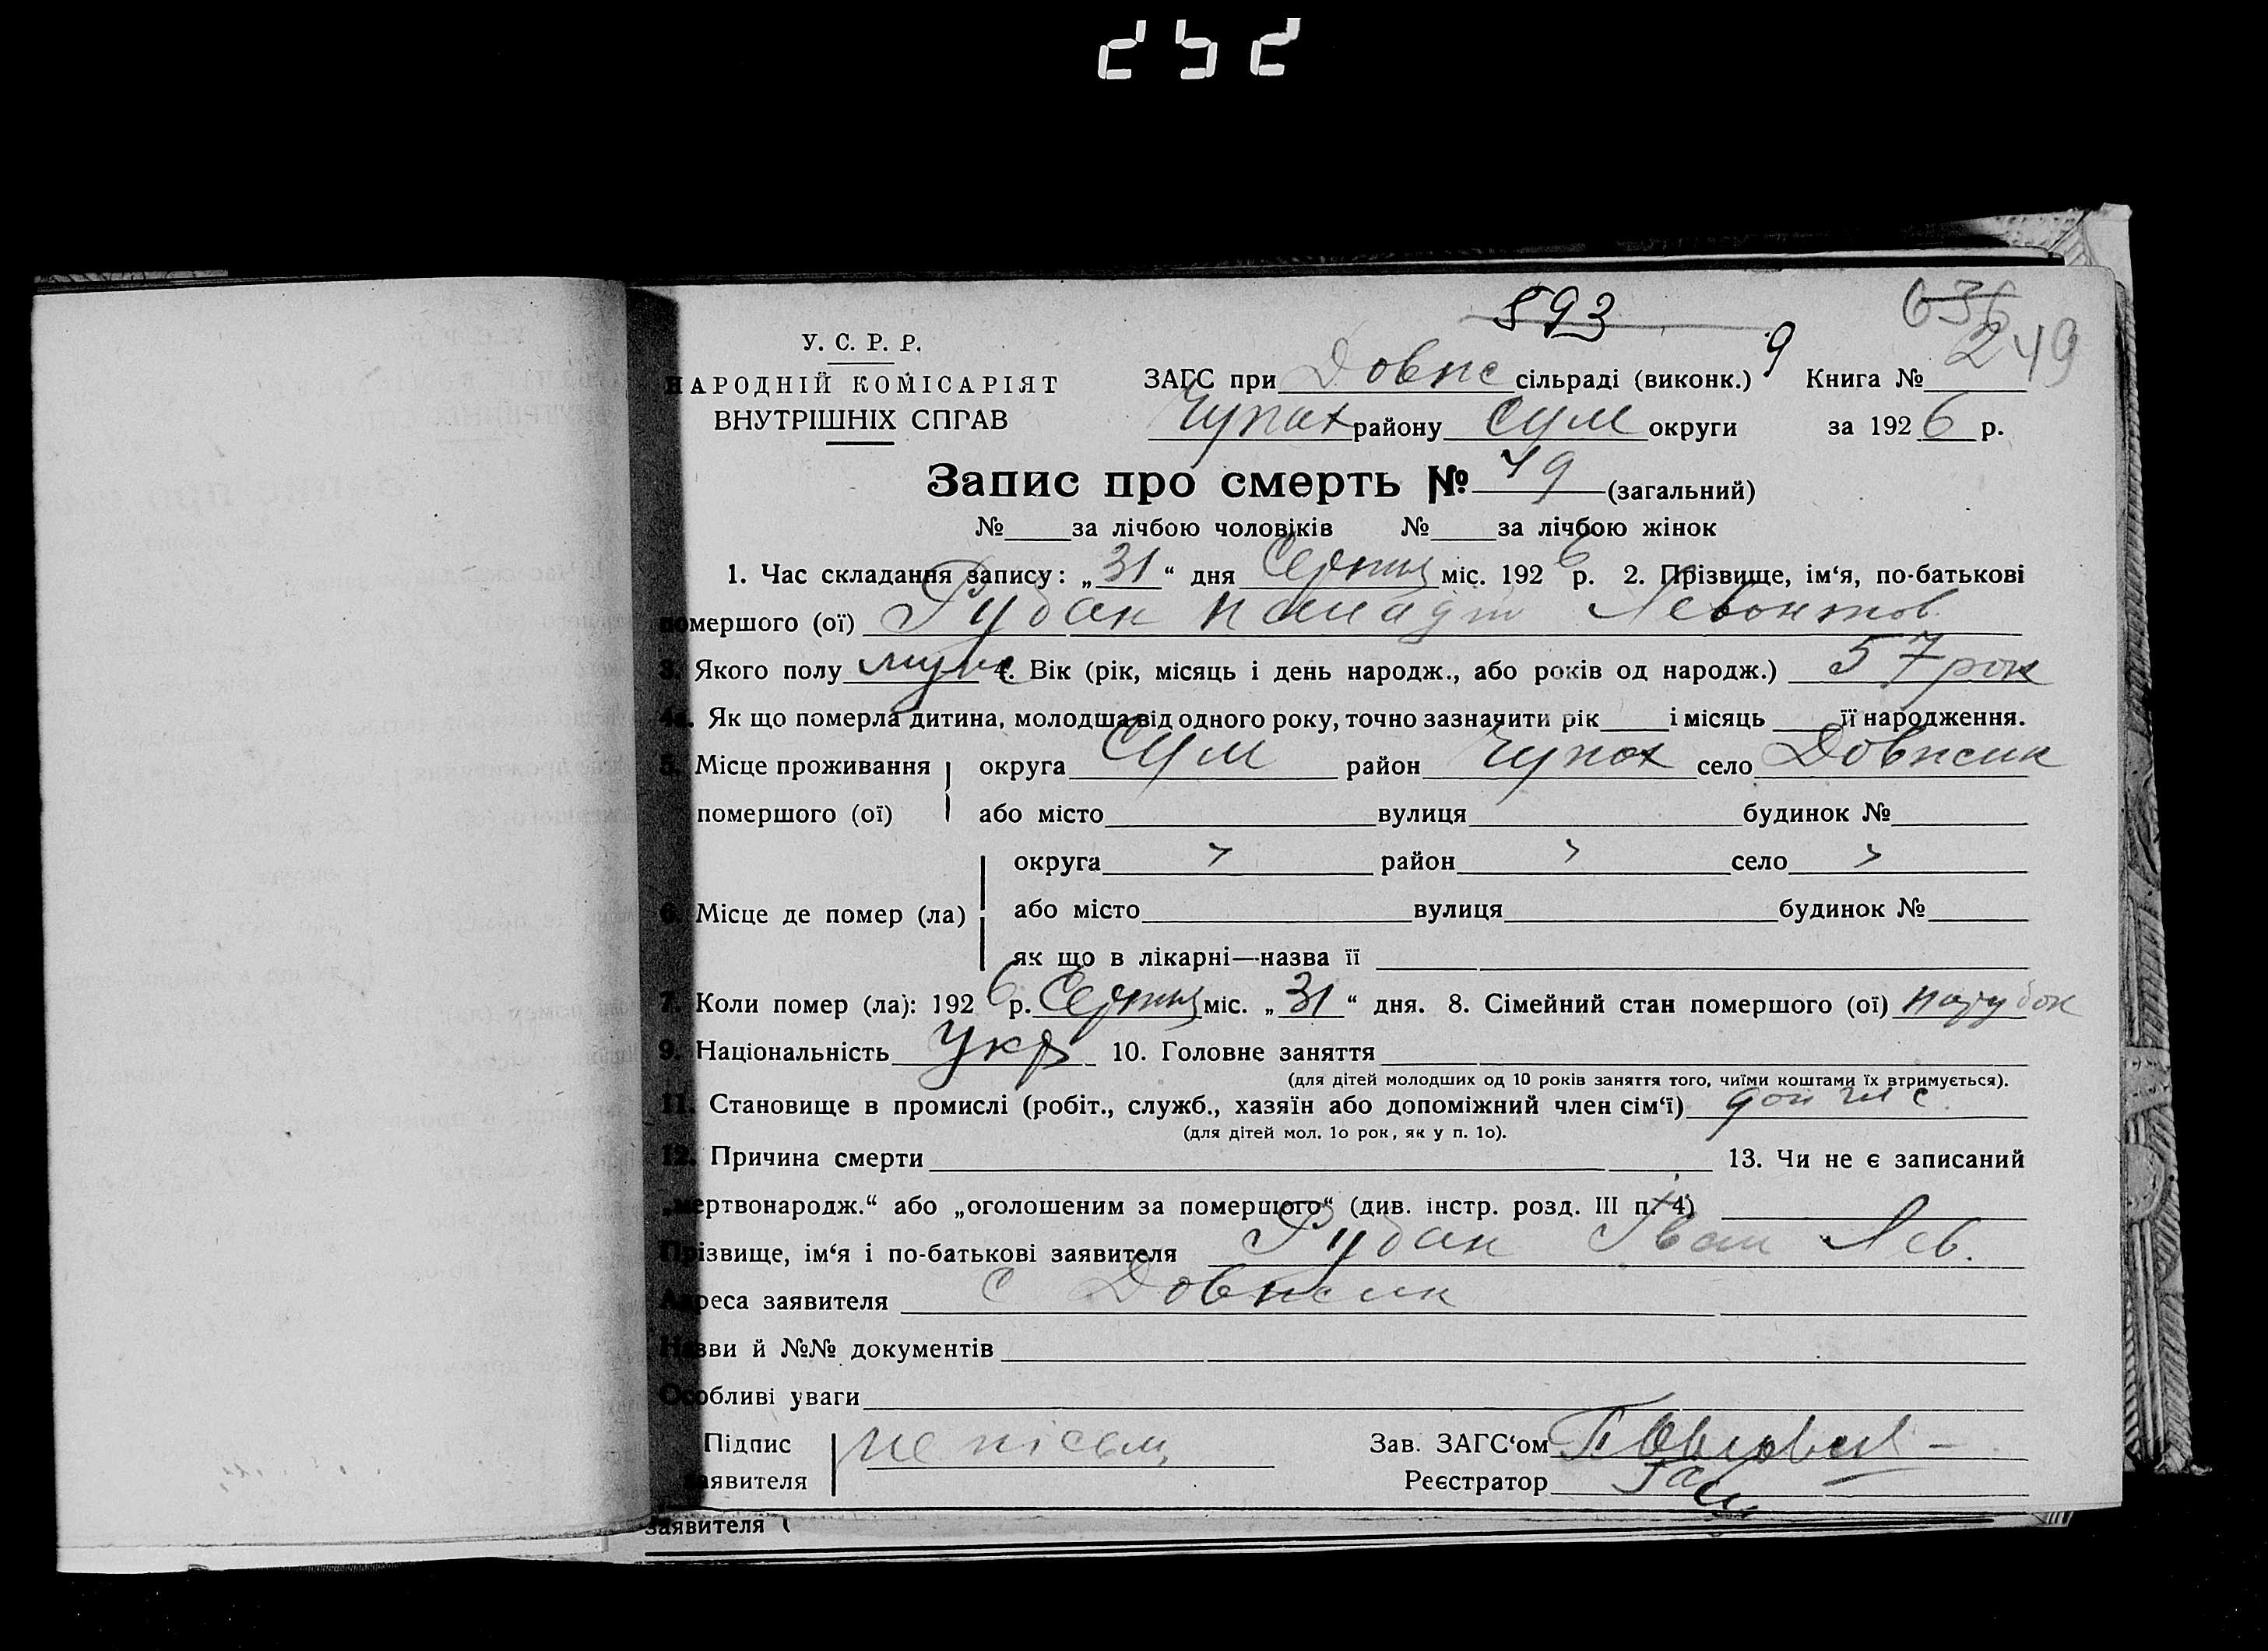 252
593
636
249
У. С. Р. Р.
НАРОДНІЙ КОМІСАРІЯТ
ВНУТРІШНІХ СПРАВ
ЗАГС при Довж сільраді (виконк.) 9 Книга №
Чупах району Сум округи за 1926 р.
Запис про смерть № 49 (загальний)
№ за лічбою чоловіків № за лічбою жінок
1. Час складання запису: „31“ дня Серпня міс. 1926 р. 2. Прізвище, ім‘я, по-батькові
помершого (ої) Рубан Левонтов
3. Якого полу муж 4. Вік (рік, місяць і день народж., або років од народж.) 57 рок
4а. Як що померла дитина, молодша від одного року, точно зазначити рік і місяць її народження.
5. Місце проживання округа Сум район Чупах село Довжик
помершого (ої) або місто вулиця будинок №
округа район село
6. Місце де помер (ла) або місто вулиця будинок №
як що в лікарні—назва її
7. Коли помер (ла): 1926 р. Серпня міс. „31“ дня. 8. Сімейний стан помершого (ої) парубок
9. Національність Укр 10. Головне заняття
(для дітей молодших од 10 років заняття того, чиїми коштами їх втримується).
11. Становище в промислі (робіт., служб., хазяїн або допоміжний член сім‘ї)
(для дітей мол. 1о рок, як у п. 1о).
12. Причина смерти 13. Чи не є записаний
„мертвонародж.“ або „оголошеним за померщого“ (див. інстр. розд. III п. 4)
Прізвище, ім‘я і по-батькові заявителя Рубан Іван Лев.
Адреса заявителя с Довжик
Назви й №№ документів
Особливі уваги
Підпис заявителя Зав. ЗАГС‘ом
Реєстратор
заявителя